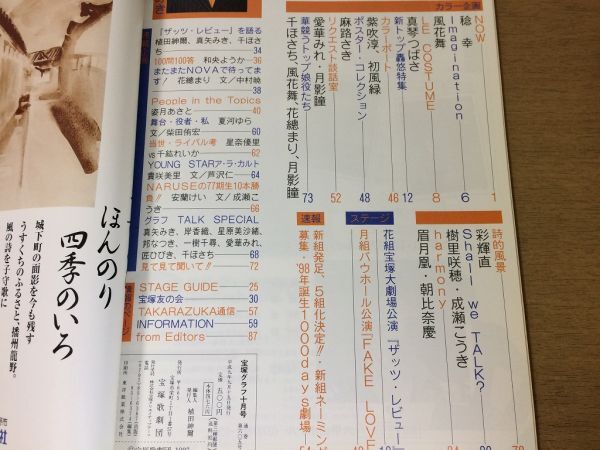 カラー企画
NOW
稔 幸 1
Imagination
風花舞 6
LE COSTUME
真琴つばさ 8
カラーポート
新トップ轟悠特集 12
ポスター・コレクション 46
紫吹淳、初風緑 48
麻路さき
リクエスト談話室 52
愛華みれ・月影瞳
華競うトップ娘役たち 73
千ほさち、風花舞、花總まり、月影瞳
詩的風景
彩輝直
Shall we TALK?
樹里咲穂・成瀬こうき
harmony
眉月凰・朝比奈慶
ステージ
花組宝塚大劇場公演『ザッツ・レビュー』
月組バウホール公演『FAKE LOVE
速報
新組発足、5組化決定!!・新組ネーミング
募集・'98年誕生1000days劇場
『ザッツ・レビュー』を語る
植田紳爾、真矢みき、千ほさち 34
100問100答 和央ようか 36
またまたNOVAで待ってます! 花總まり/文/中村暁 38
People in the Topics
姿月あさと 40
舞台・役者・私 夏河ゆら
文/柴田侑宏 60
当世・ライバル考 星奈優里
vs千紘れいか 62
YOUNG STARア・ラ・カルト
貴咲美里 文/芦沢仁 64
NARUSEの77期生10本勝負!! 安蘭けい 文/成瀬こうき 66
グラフ TALK SPECIAL
真矢みき、岸香織、星原美沙緒、
邦なつき、一樹千尋、愛華みれ、
匠ひびき、千ほさち 68
見て見て聞いて!! 72
STAGE GUIDE 25
宝塚友の会 30
TAKARAZUKA通信 57
INFORMATION 59
from Editors 87
宝塚グラフ十月号
定価 五〇〇円
発行人 植田紳爾
宝塚歌劇団
ほんのり
四季のいろ
城下町の面影を今も残す
うすくちのふるさと、播州龍野。
風の詩を子守歌に